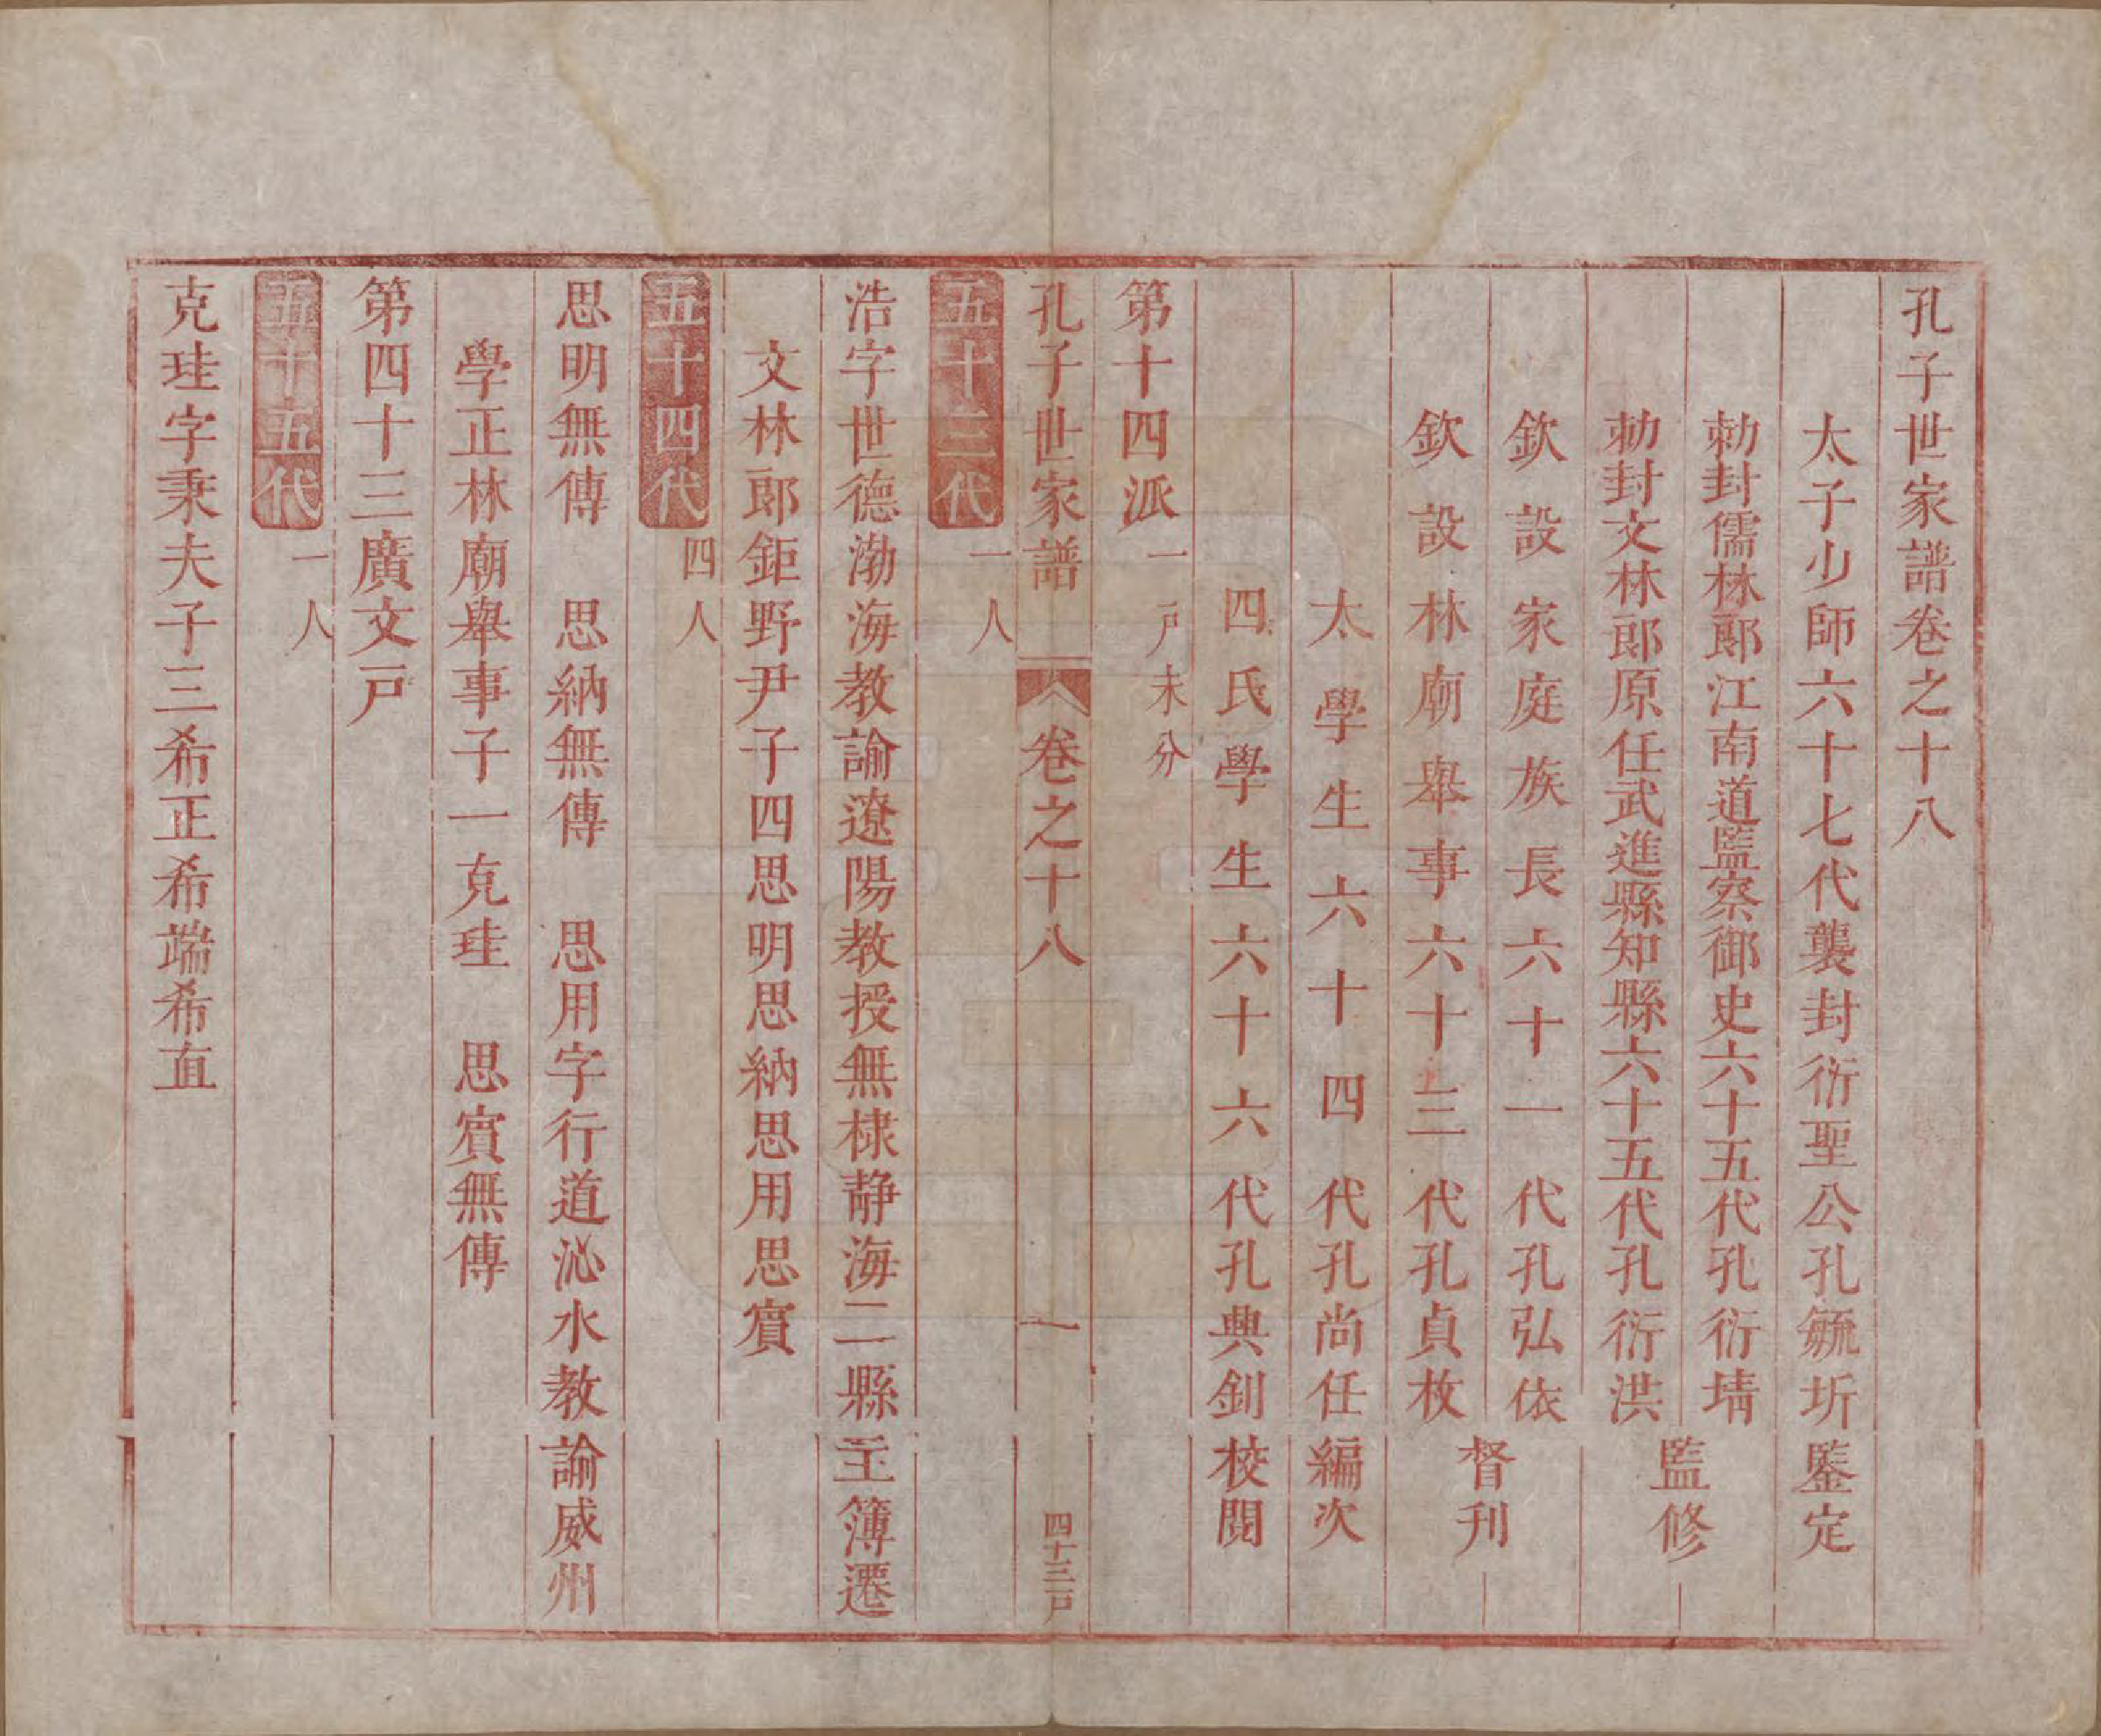 孔子世家譜卷之十八
太子少師六十七代襲封衍聖公孔毓圻鑒定
勅封儒林郎江南道監察御史六十五代孔衍㙫
勅封文林郎原任武進縣知縣六十五代孔衍洪
監修
欽設家庭族長六十一代孔弘依
欽設林廟舉事六十三代孔貞枚
督刊
太學生六十四代孔尚任編次
四氏學生六十六代孔興釗校閱
第十四派一戸未分
孔子世家譜 卷之十八 一 四十三戸
五十三代一人
浩字世德渤海教諭遼陽教授無棣静海二縣主簿遷
文林郎鉅野尹子四思明思納思用思賓
五十四代四人
思明無傳 思納無傳 思用字行道沁水教諭威州
學正林廟舉事子一克珪 思賓無傳
第四十三廣文戸
五十五代一人
克珪字秉夫子三希正希端希直